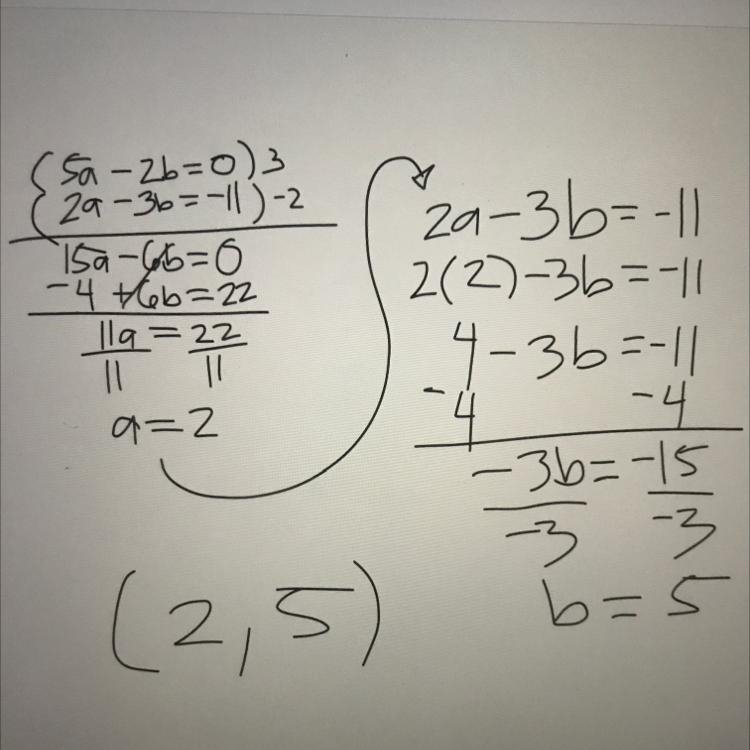 5a - 2b = 0) 3
2a - 3b = -11) -2
15a - 6b = 0
-4 + 6b = 22
11a = 22
11 11
a = 2
2a - 3b = -11
2(2) - 3b = -11
4 - 3b = -11
-4 -4
-3b = -15
-3 -3
b = 5
(2, 5)